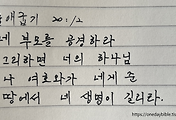 출애굽기 20:12
네 부모를 공경하라
그리하면 너의 하나님
나 여호와가 네게 준
땅에서 네 생명이 길리라.
https://onedaybible.tis